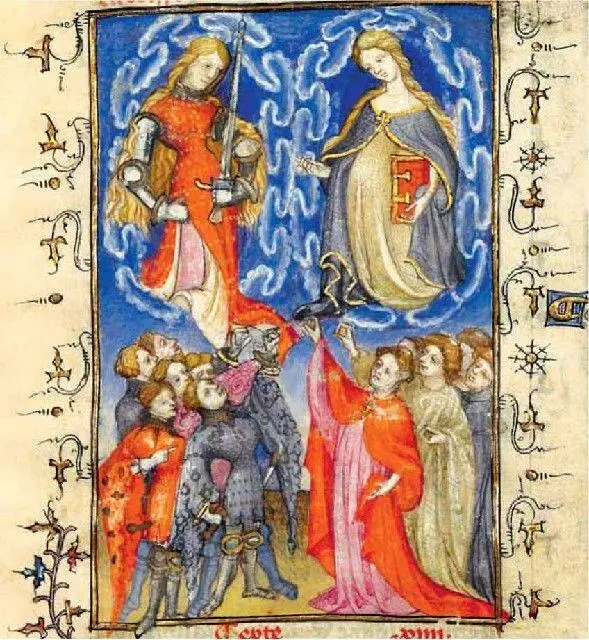 Texte .xiiii.